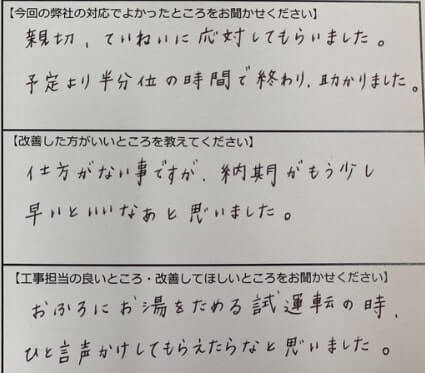 【今回の弊社の対応でよかったところをお聞かせください】
親切、ていねいに応対してもらいました。
予定より半分位の時間で終わり、助かりました。
【改善した方がいいところを教えてください】
仕方がない事ですが、納期がもう少し
早いといいなぁと思いました。
【工事担当の良いところ・改善してほしいところをお聞かせください】
おふろにお湯をためる試運転の時、
ひと言声かけしてもらえたらなと思いました。